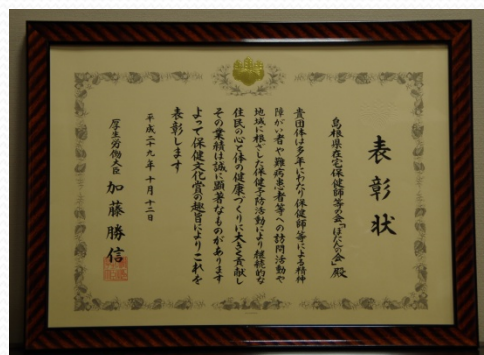 表彰状
島根県在宅保健師等の会「ぼたんの会」殿
貴団体は多年にわたり保健師等による精神
障がい者や難病患者等への訪問活動や
地域に根ざした保健予防活動により継続的な
住民の心と体の健康づくりに大きく貢献し
その業績は誠に顕著なものがあります
よって保健文化賞の趣旨によりこれを
表彰します
平成二十九年十月十二日
厚生労働大臣 加藤勝信